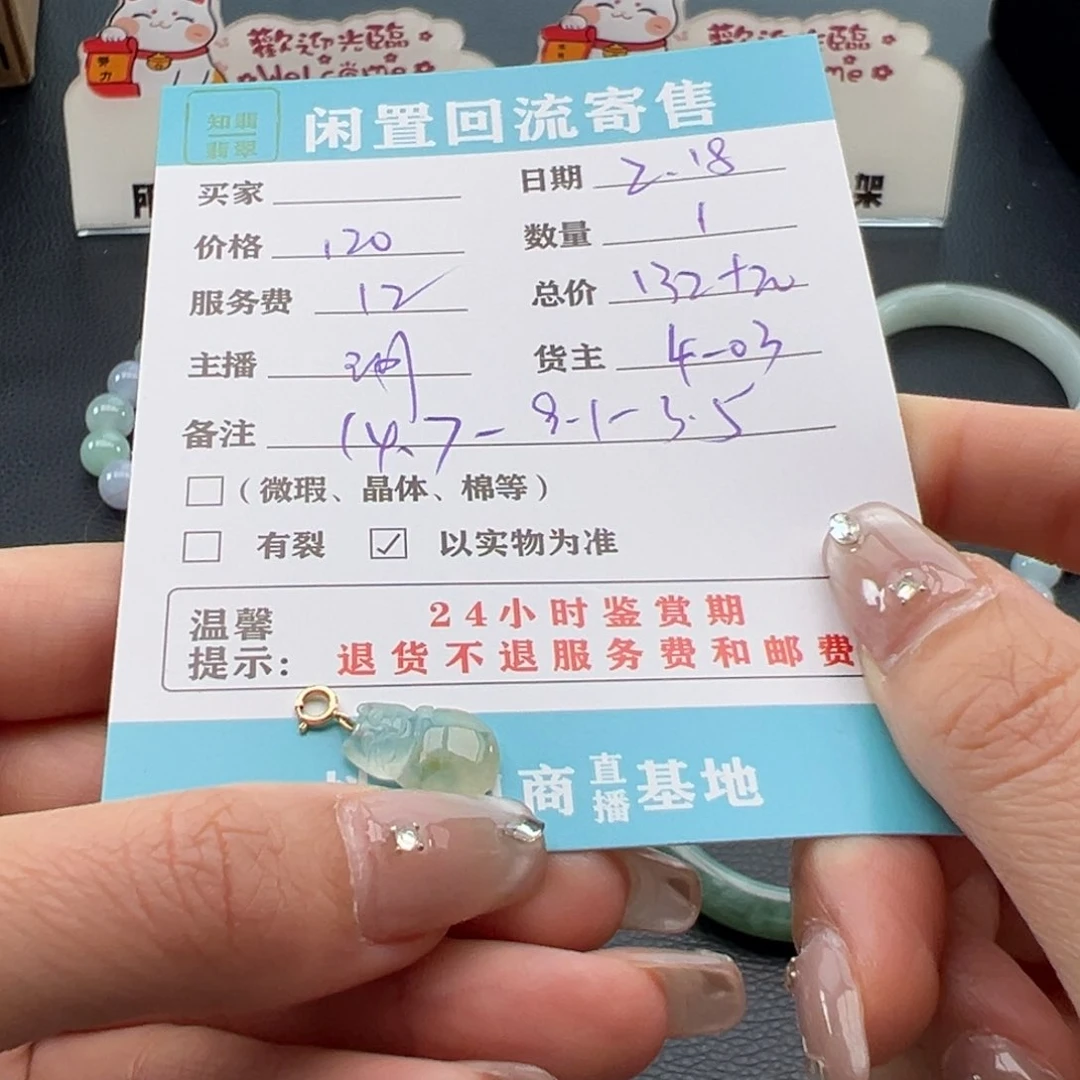 歡迎光臨
Welcome
歡迎光臨
努力
知翡
翡翠
闲置回流寄售
买家
日期 2.18
价格 120
数量 1
服务费 12
总价 132+20
主播
货主 4-03
备注 14.7-8.1-3.5
(微瑕、晶体、棉等)
有裂 ☑ 以实物为准
架
温馨
提示:
24小时鉴赏期
退货不退服务费和邮费
商直播基地